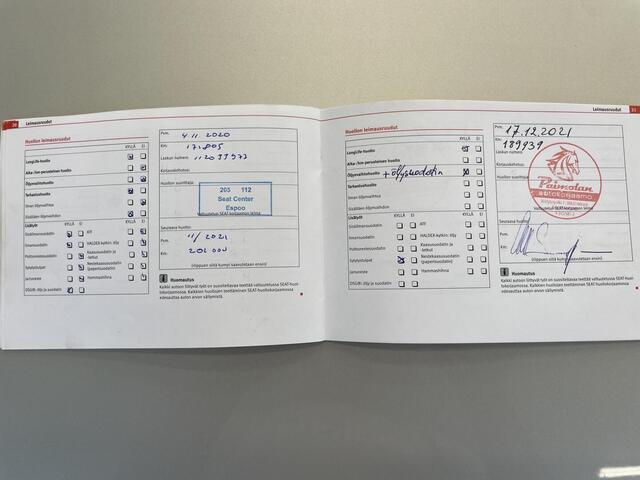 34
Leimausruudut
Huollon leimausruudut
KYLLÄ EI
LongLife-huolto
Aika-/km-perusteinen huolto
Öljynvaihtohuolto
Tarkastushuolto
Ilman öljynvaihtoa
Sisältäen öljynvaihdon
Lisätyöt
KYLLÄ EI
KYLLÄ EI
Sisäilmansuodatin
ATF
Ilmansuodatin
HALDEX-kytkin: öljy
Polttonestesuodatin
Kaasusuodatin ja -letkut
Sytytystulpat
Nestekaasusuodatin (paperisuodatin)
Jarruneste
Hammashihna
DSG®: öljy ja suodatin
Pvm.
4.11.2020
Km:
Laskun numero:
Korjauskehotus:
Huollon suorittaja:
205 112
Seat Center
Espoo
Valtuutetun SEAT-korjaamon leima
Seuraava huolto:
Pvm.
11/2021
Km:
(riippuen siitä kumpi saavutetaan ensin)
Huomautus
Kaikki autoon liittyvät työt on suositeltavaa teettää valtuutetussa SEAT-huoltokorjaamossa. Kaikkien huoltojen teettäminen SEAT-huoltokorjaamossa edesauttaa auton arvon säilymistä.
Leimausruudut
35
Huollon leimausruudut
KYLLÄ EI
LongLife-huolto
Aika-/km-perusteinen huolto
Öljynvaihtohuolto + öljysuodatin
Tarkastushuolto
Ilman öljynvaihtoa
Sisältäen öljynvaihdon
Lisätyöt
KYLLÄ EI
KYLLÄ EI
Sisäilmansuodatin
ATF
Ilmansuodatin
HALDEX-kytkin: öljy
Polttonestesuodatin
Kaasusuodatin ja -letkut
Sytytystulpat
Nestekaasusuodatin (paperisuodatin)
Jarruneste
Hammashihna
DSG®: öljy ja suodatin
Pvm.
17.12.2021
Km:
189939
Laskun numero:
Korjauskehotus:
Huollon suorittaja:
autokorjaamo
Seuraava huolto:
Pvm.
Km:
(riippuen siitä kumpi saavutetaan ensin)
Huomautus
Kaikki autoon liittyvät työt on suositeltavaa teettää valtuutetussa SEAT-huoltokorjaamossa. Kaikkien huoltojen teettäminen SEAT-huoltokorjaamossa edesauttaa auton arvon säilymistä.